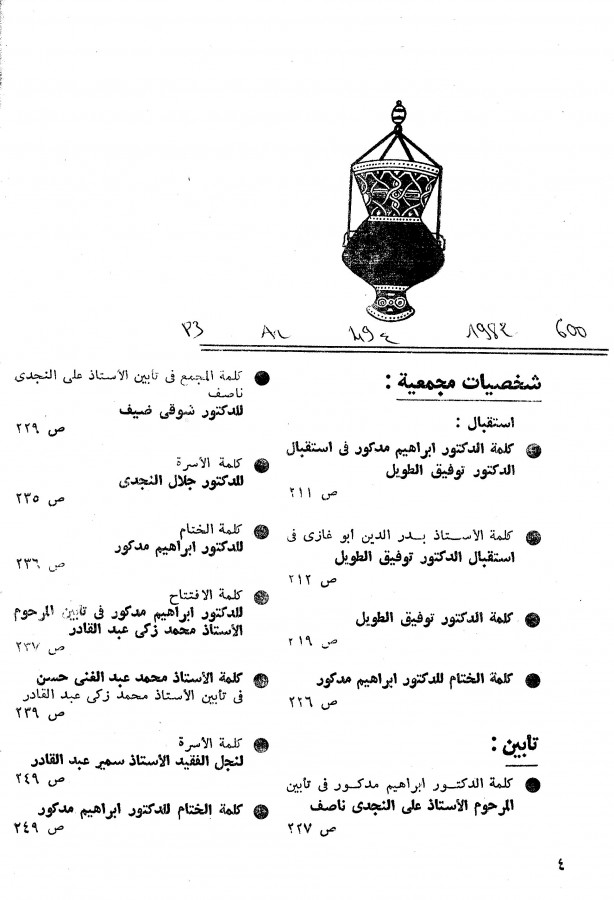 P3 1982 600
شخصيات مجمعية :
استقبال :
كلمة الدكتور ابراهيم مدكور فى استقبال
الدكتور توفيق الطويل
ص ٢١١
كلمة الأستاذ بدر الدين ابو غازى فى
استقبال الدكتور توفيق الطويل
ص ٢١٢
كلمة الدكتور توفيق الطويل
ص ٢١٩
كلمة الختام للدكتور ابراهيم مدكور
ص ٢٢٦
تأبين :
كلمة الدكتور ابراهيم مدكور فى تأبين
المرحوم الأستاذ على النجدى ناصف
ص ٢٢٧
كلمة المجمع فى تأبين الأستاذ على النجدى
ناصف
للدكتور شوقى ضيف
ص ٢٢٩
كلمة الأسرة
للدكتور جلال النجدى
ص ٢٣٥
كلمة الختام
للدكتور ابراهيم مدكور
ص ٢٣٦
كلمة الافتتاح
للدكتور ابراهيم مدكور فى تأبين المرحوم
الأستاذ محمد زكى عبد القادر
ص ٢٣٧
كلمة الأستاذ محمد عبد الغنى حسن
فى تأبين الأستاذ محمد زكى عبد القادر
ص ٢٣٩
كلمة الأسرة
لنجل الفقيد الأستاذ سمير عبد القادر
ص ٢٤٩
كلمة الختام للدكتور ابراهيم مدكور
ص ٢٤٩
٤